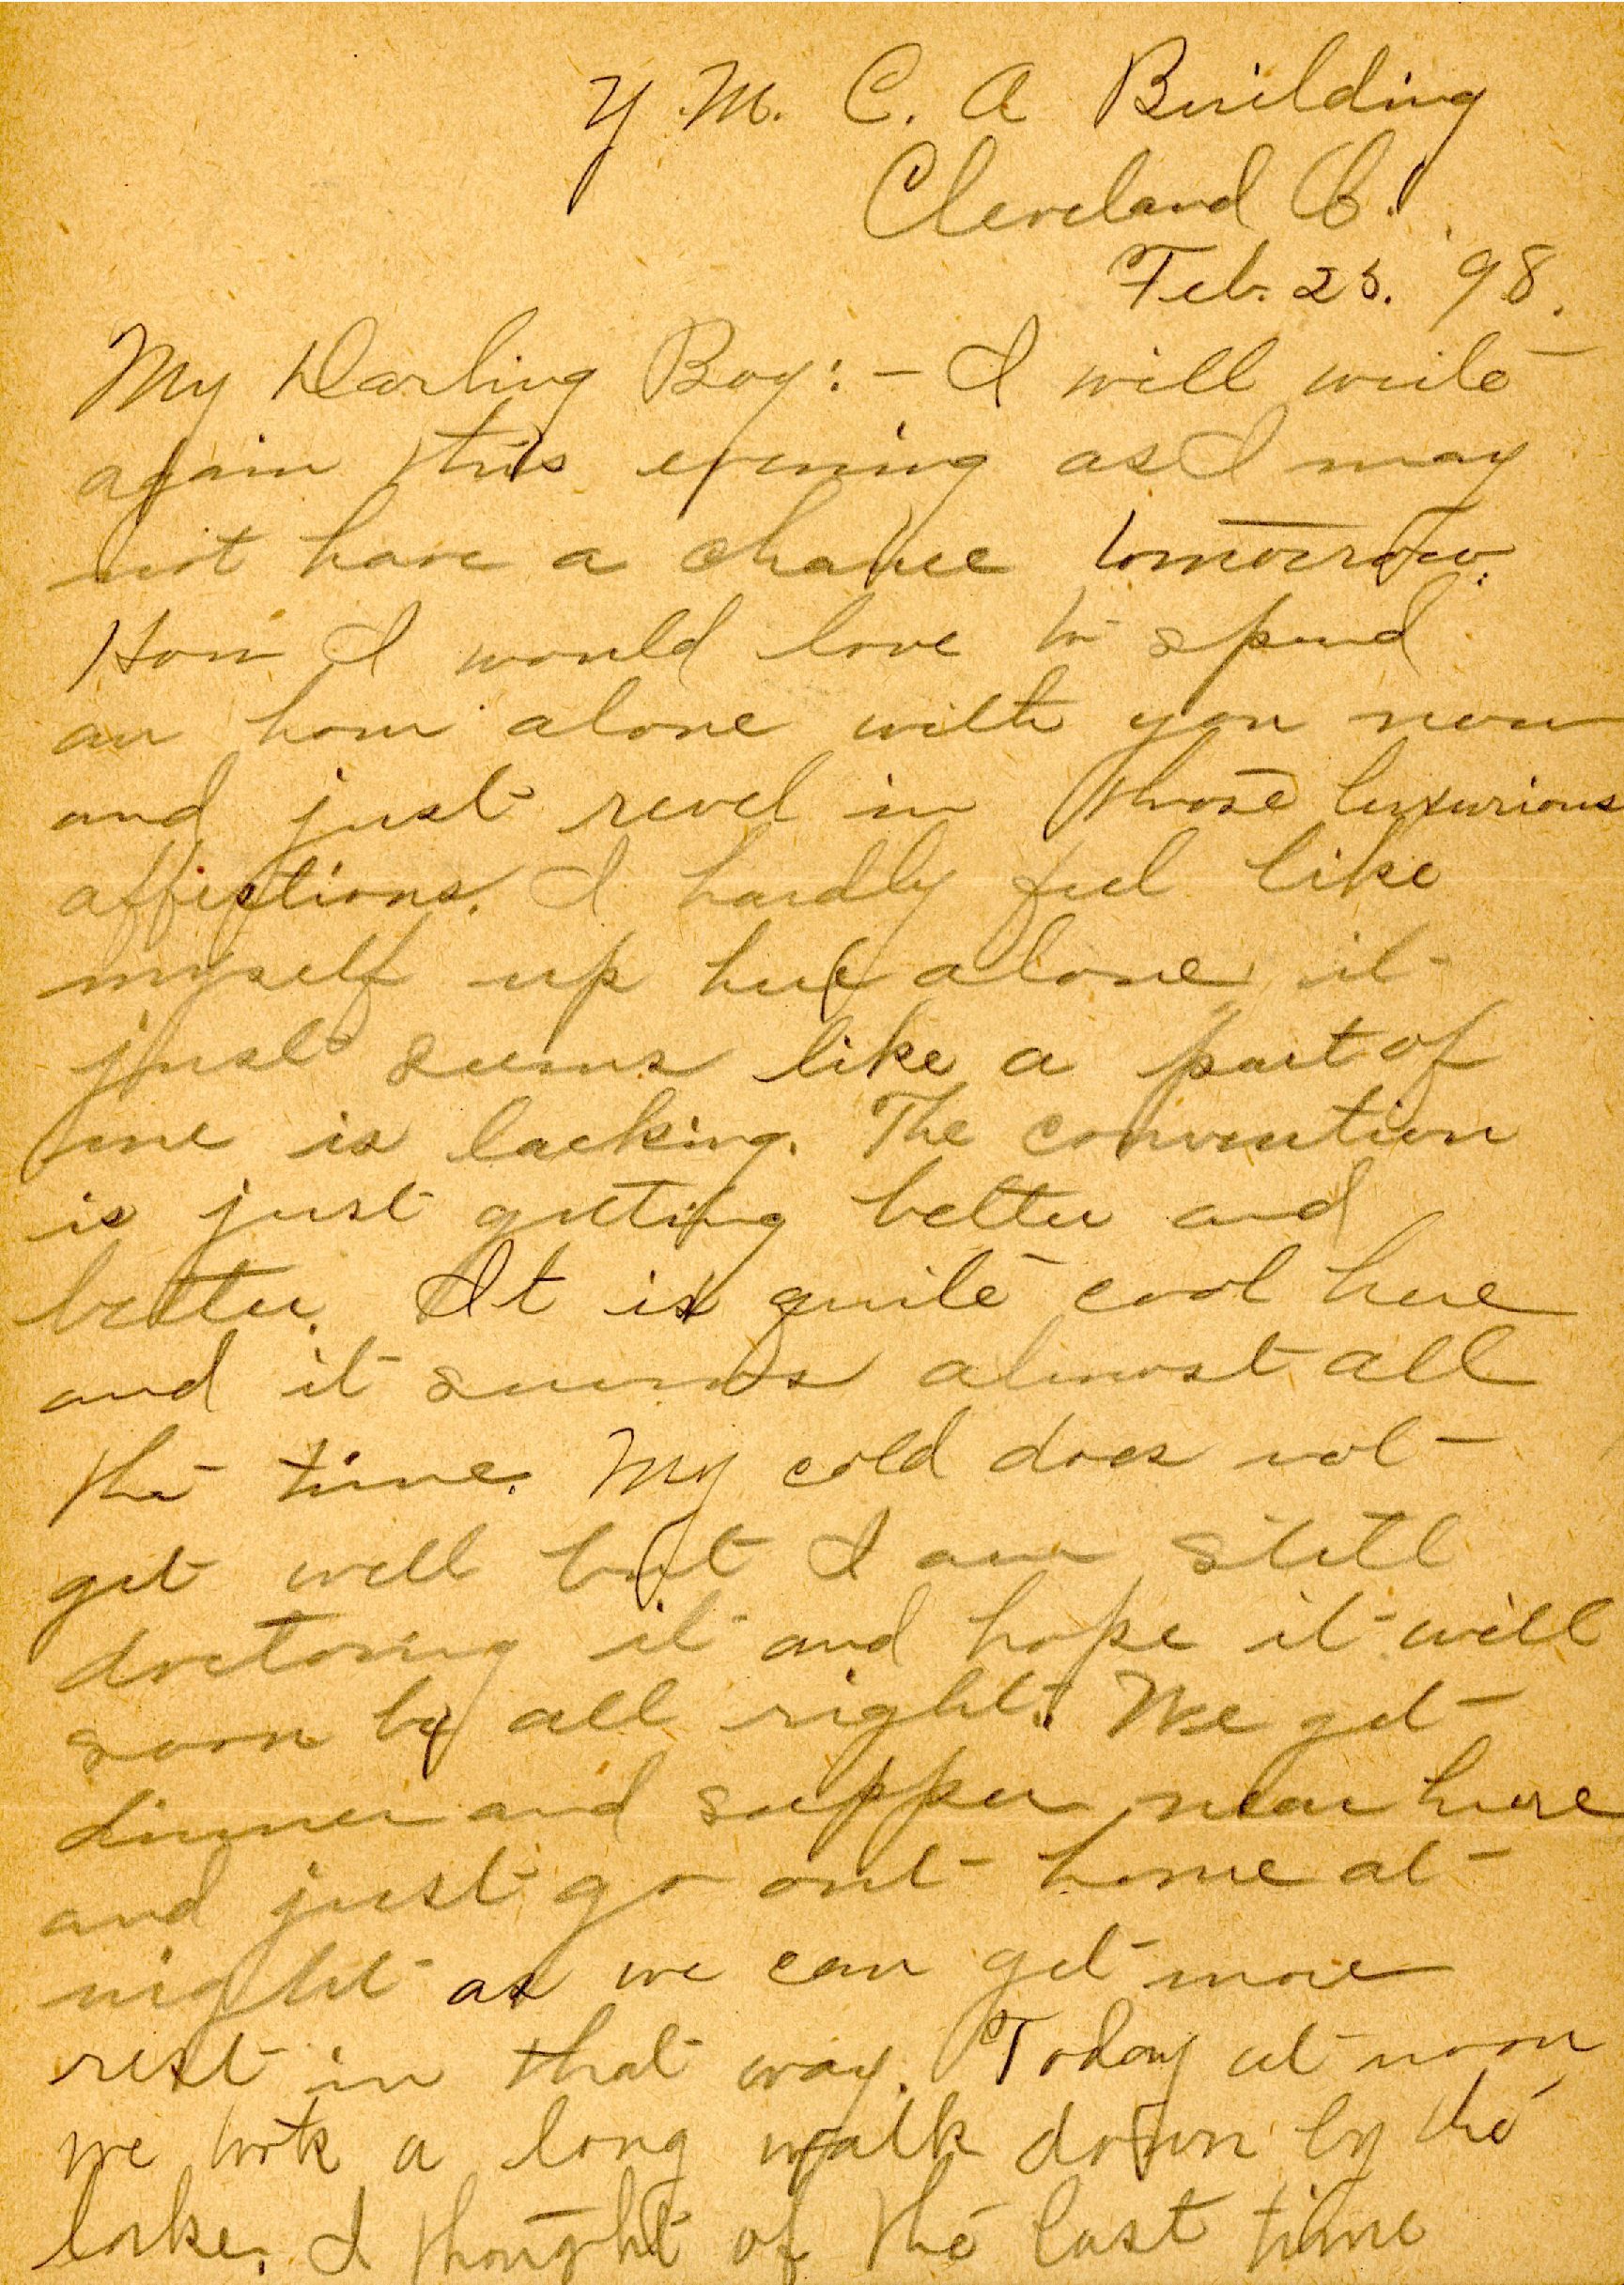 Y. M. C. A Building
Cleveland O.
Feb. 23. '98.
My Darling Boy:- I will write
again this evening as I may
not have a chance tomorrow.
How I would love to spend
an hour alone with you now
and just revel in those luxurious
affections. I hardly feel like
myself up here alone, it
just seems like a part of
me is lacking. The convention
is just getting better and
better. It is quite cool here
and it snows almost all
the time. My cold does not
get well but I am still
doctoring it and hope it will
soon be all right. We get
dinner and supper near here
and just go out home at
night as we can get more
rest in that way. Today at noon
we took a long walk down by the
lake, I thought of the last time